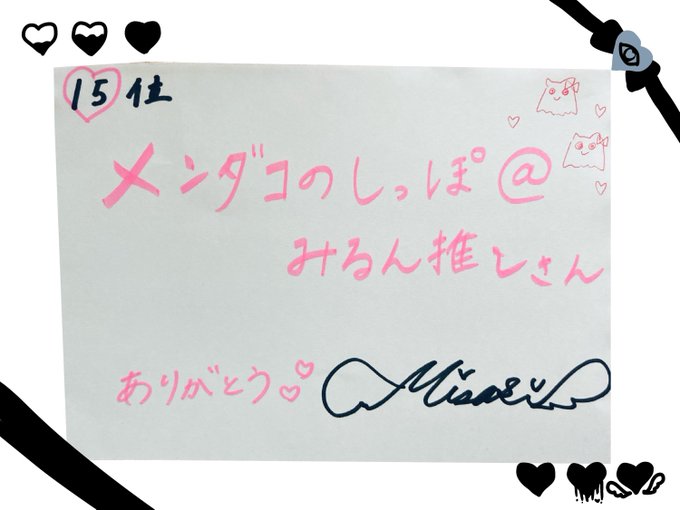 15位
メンダコのしっぽ@
みるん推しさん
ありがとう